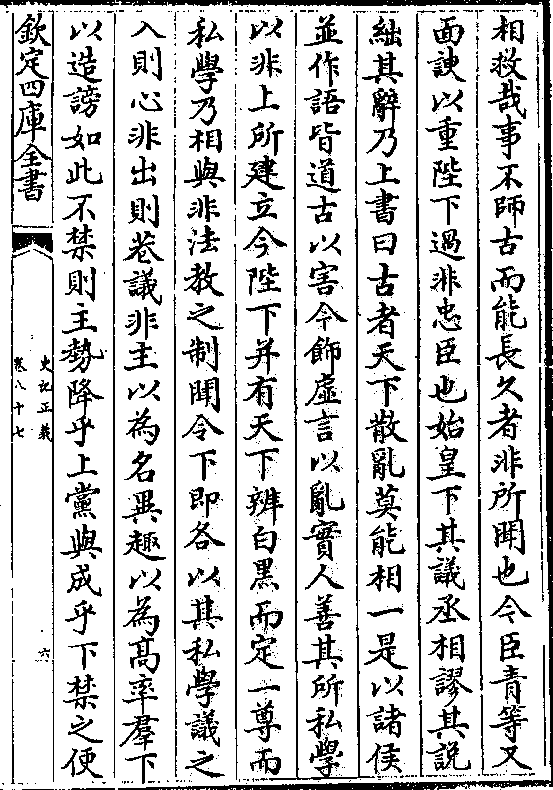 相救哉事不師古而能長久者非所聞也今臣青等又
面諛以重陛下過非忠臣也始皇下其議丞相謬其説
絀其辭乃上書曰古者天下散亂莫能相一是以諸侯
並作語皆道古以害今飾虛言以亂實人善其所私學
以非上所建立今陛下并有天下辨白黒而定一尊而
私學乃相與非法教之制聞令下即各以其私學議之
入則心非出則巷議非主以為名異趣以為髙率羣下
以造謗如此不禁則主勢降乎上黨與成乎下禁之便
欽定四庫全書
史記正義
卷八十七
六